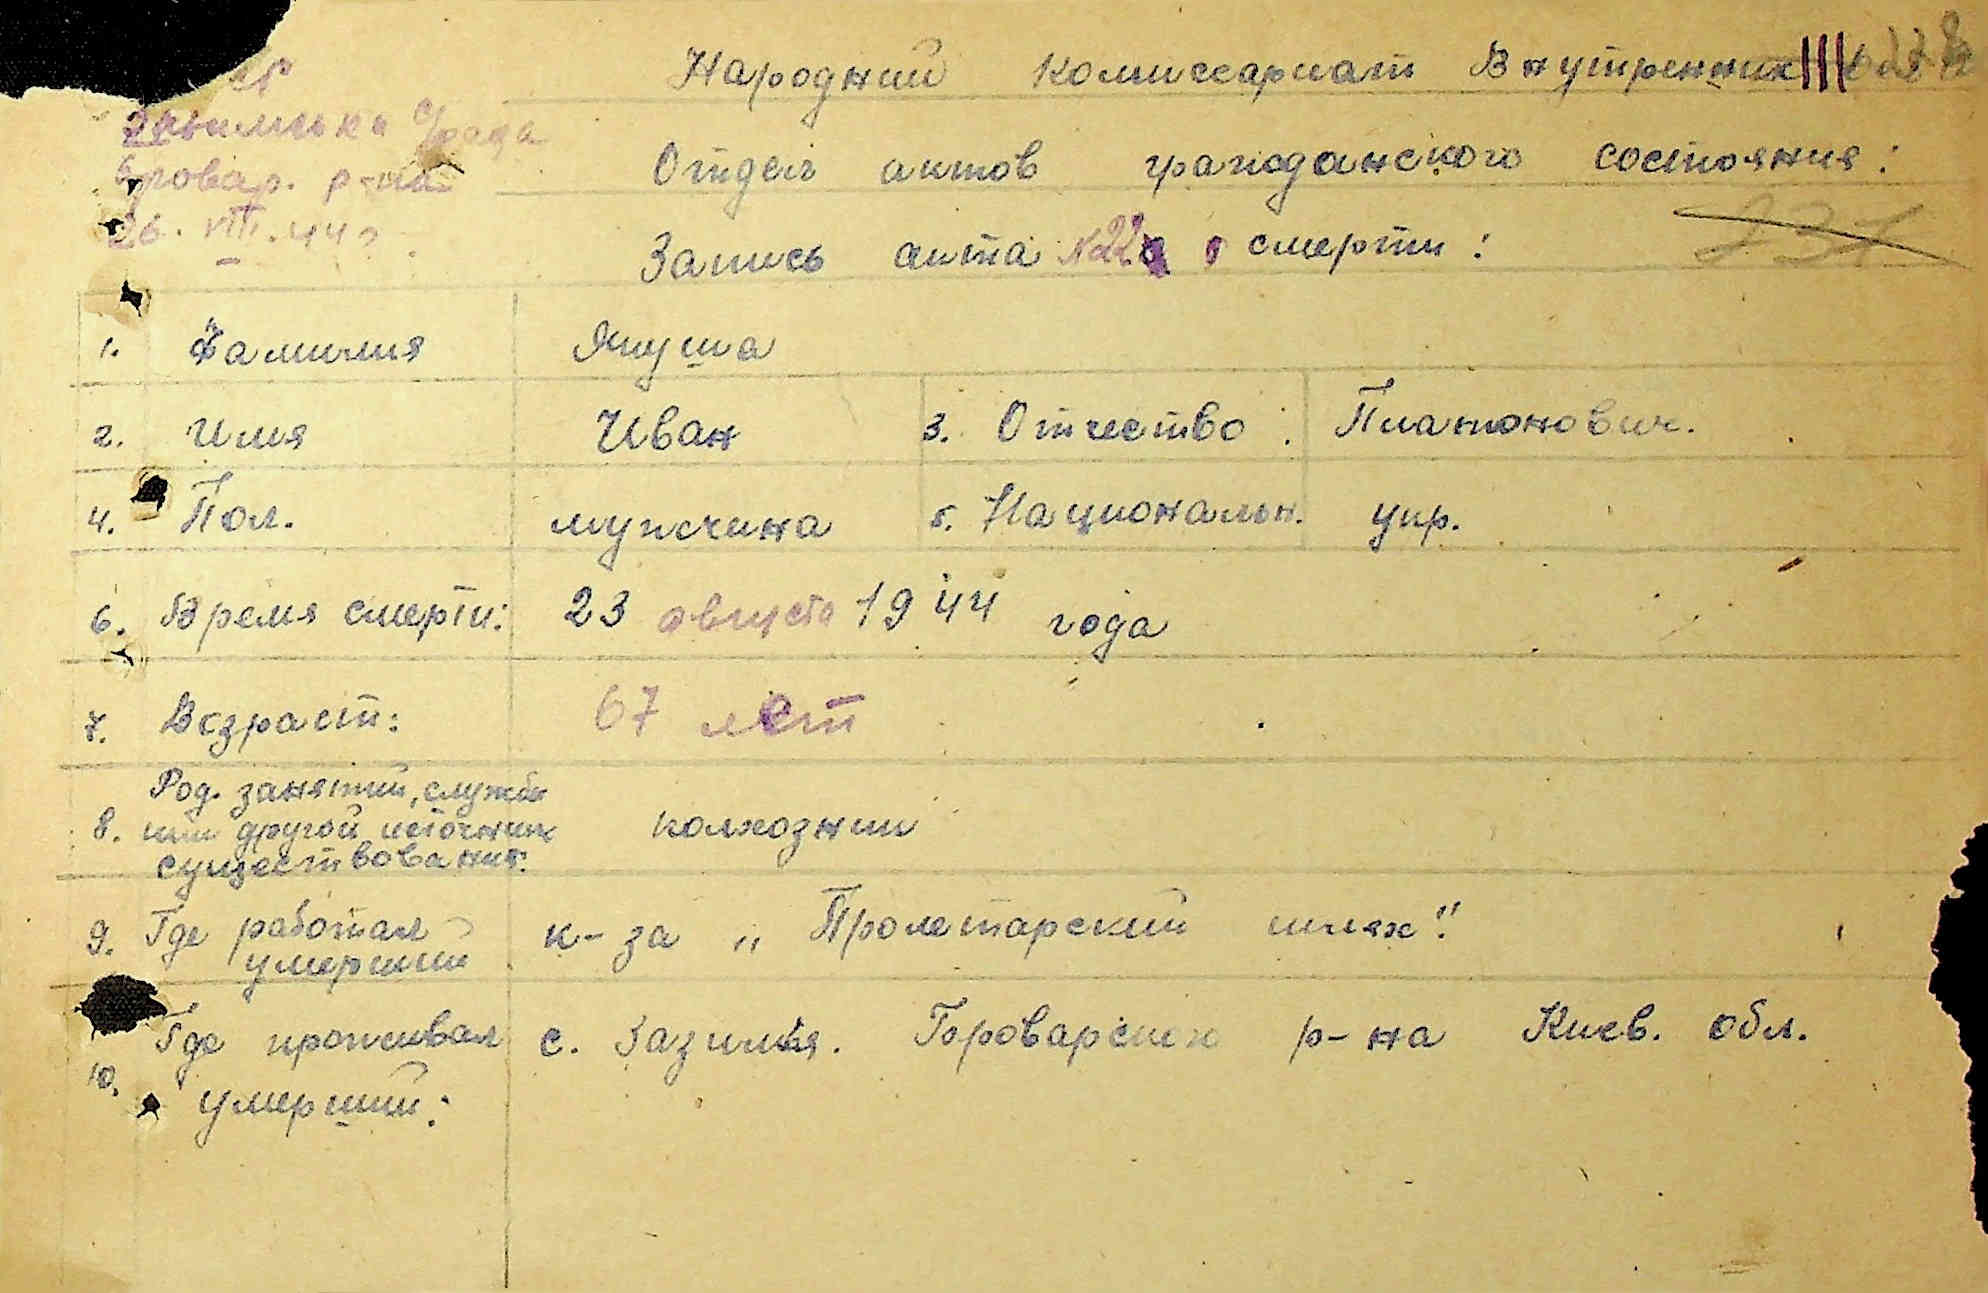 Зазимська С/рада
Бровар. р-на
26. VIII. 44 г
Народний Комиссариат Внутренних
Отдел актов гражданского состояния:
Запись акта №22 о смерти:
1. Фамилия Якуша
2. Имя Иван 3. Отчество: Платонович.
4. Пол. мужчина 5. Национальн. укр.
6. Время смерти: 23 августа 1944 года
7. Возраст: 67 лет
Род. занятий, службы
8. или другой источник колхозник
существования:
9. Где работал к-за „Пролетарский шлях"
умерший
Где проживал с. Зазимья. Броварского р-на Киев. обл.
10. умерший: